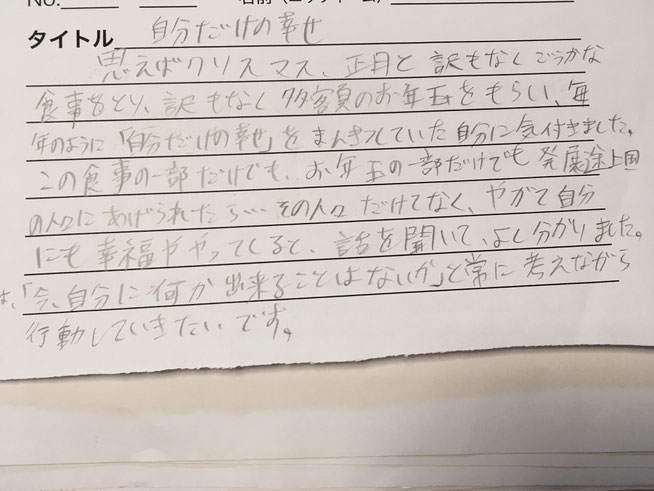 No.
タイトル 自分だけの幸せ
思えばクリスマス、正月と訳もなくごうかな
食事をとり、訳もなく多額のお年玉をもらい、毎
年のように「自分だけの幸せ」をまんきつしていた自分に気付きました。
この食事の一部だけでも、お年玉の一部だけでも発展途上国
の人口にあげられたら…その人口だけでなく、やがて自分
にも幸福ややってくると、話を聞いて、よく分かりました。
は、「今、自分に何か出来ることはないか」と常に考えながら
行動していきたいです。